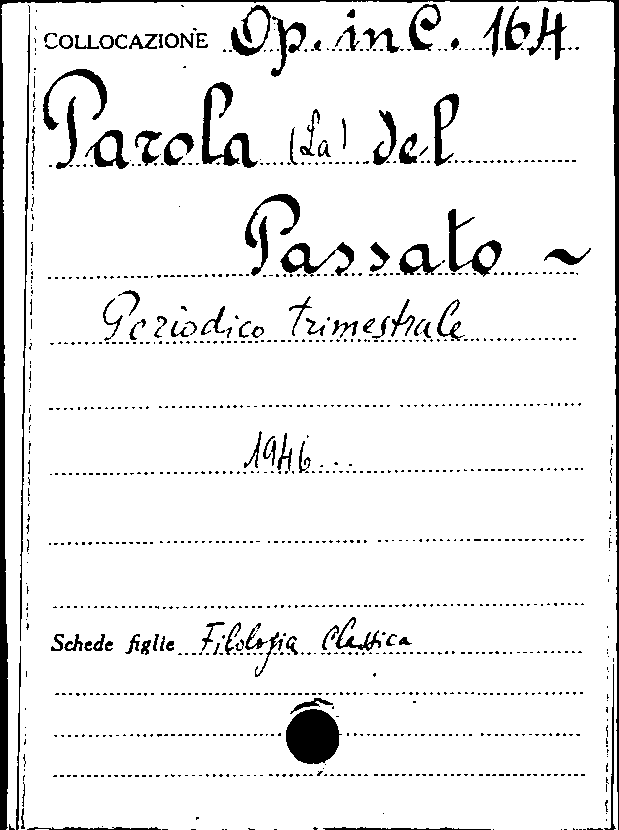 COLLOCAZIONE Op. in C. 164
Parola (La) del
Passato ~
Periodico trimestrale
1946...
Schede figlie Filologia Classica